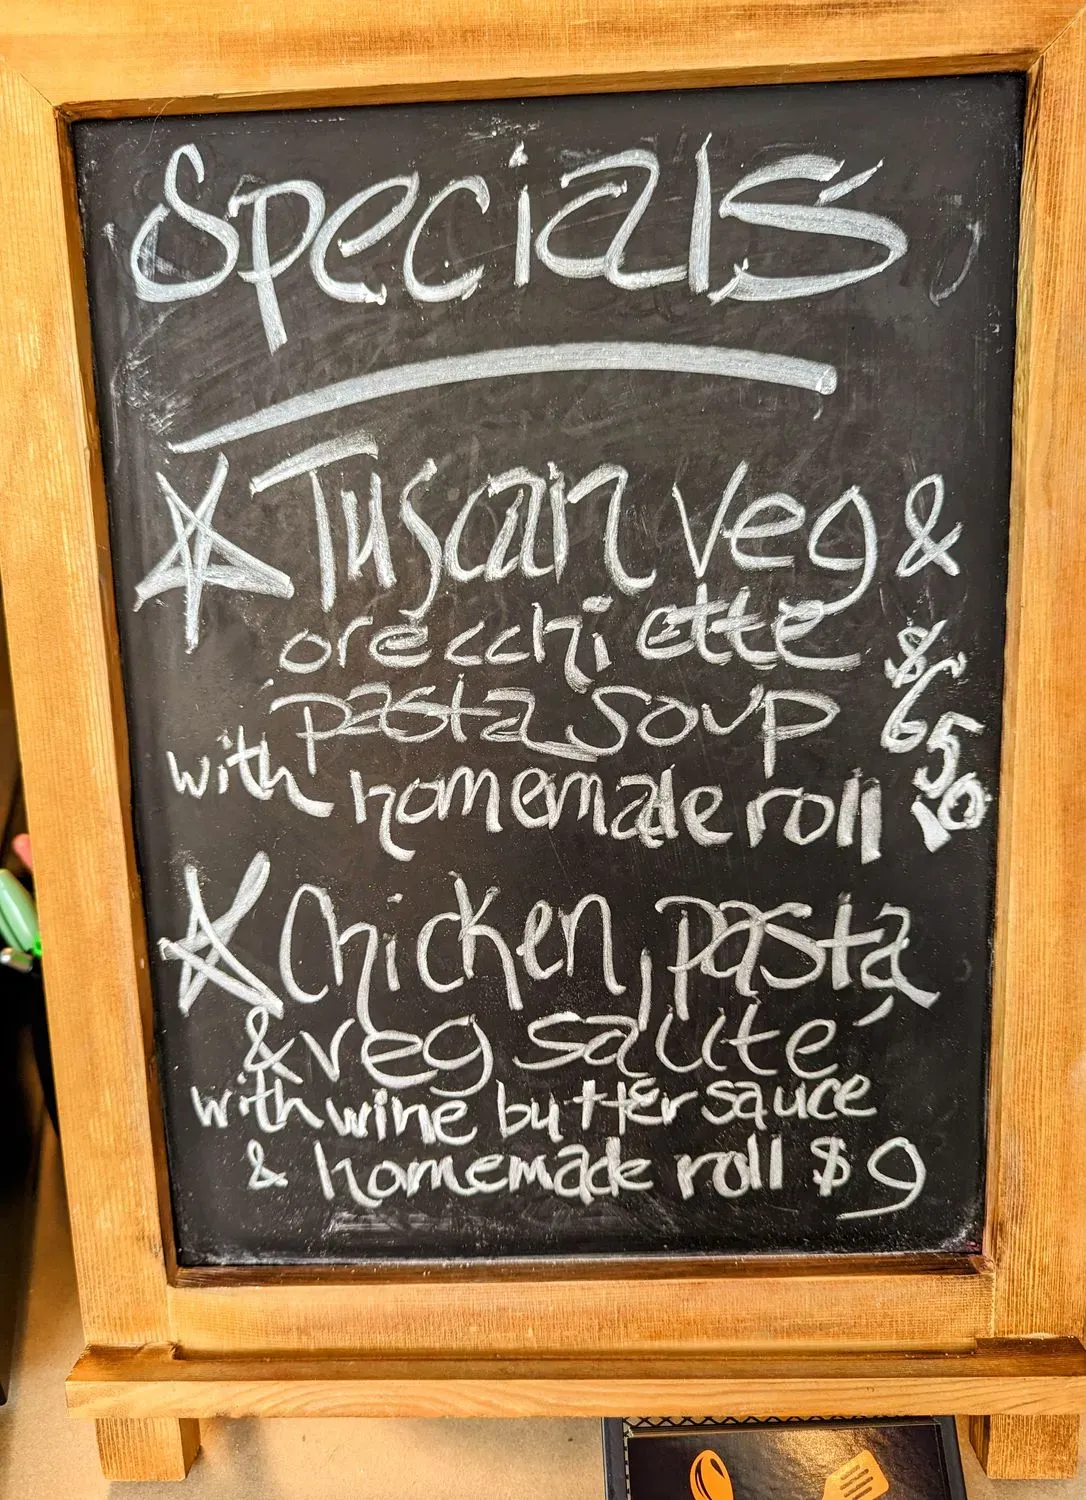 Specials
Tuscan veg &
orecchiette
pasta soup
with homemade roll
$
6
50
Chicken, pasta,
& veg saute
with wine butter sauce
& homemade roll $9